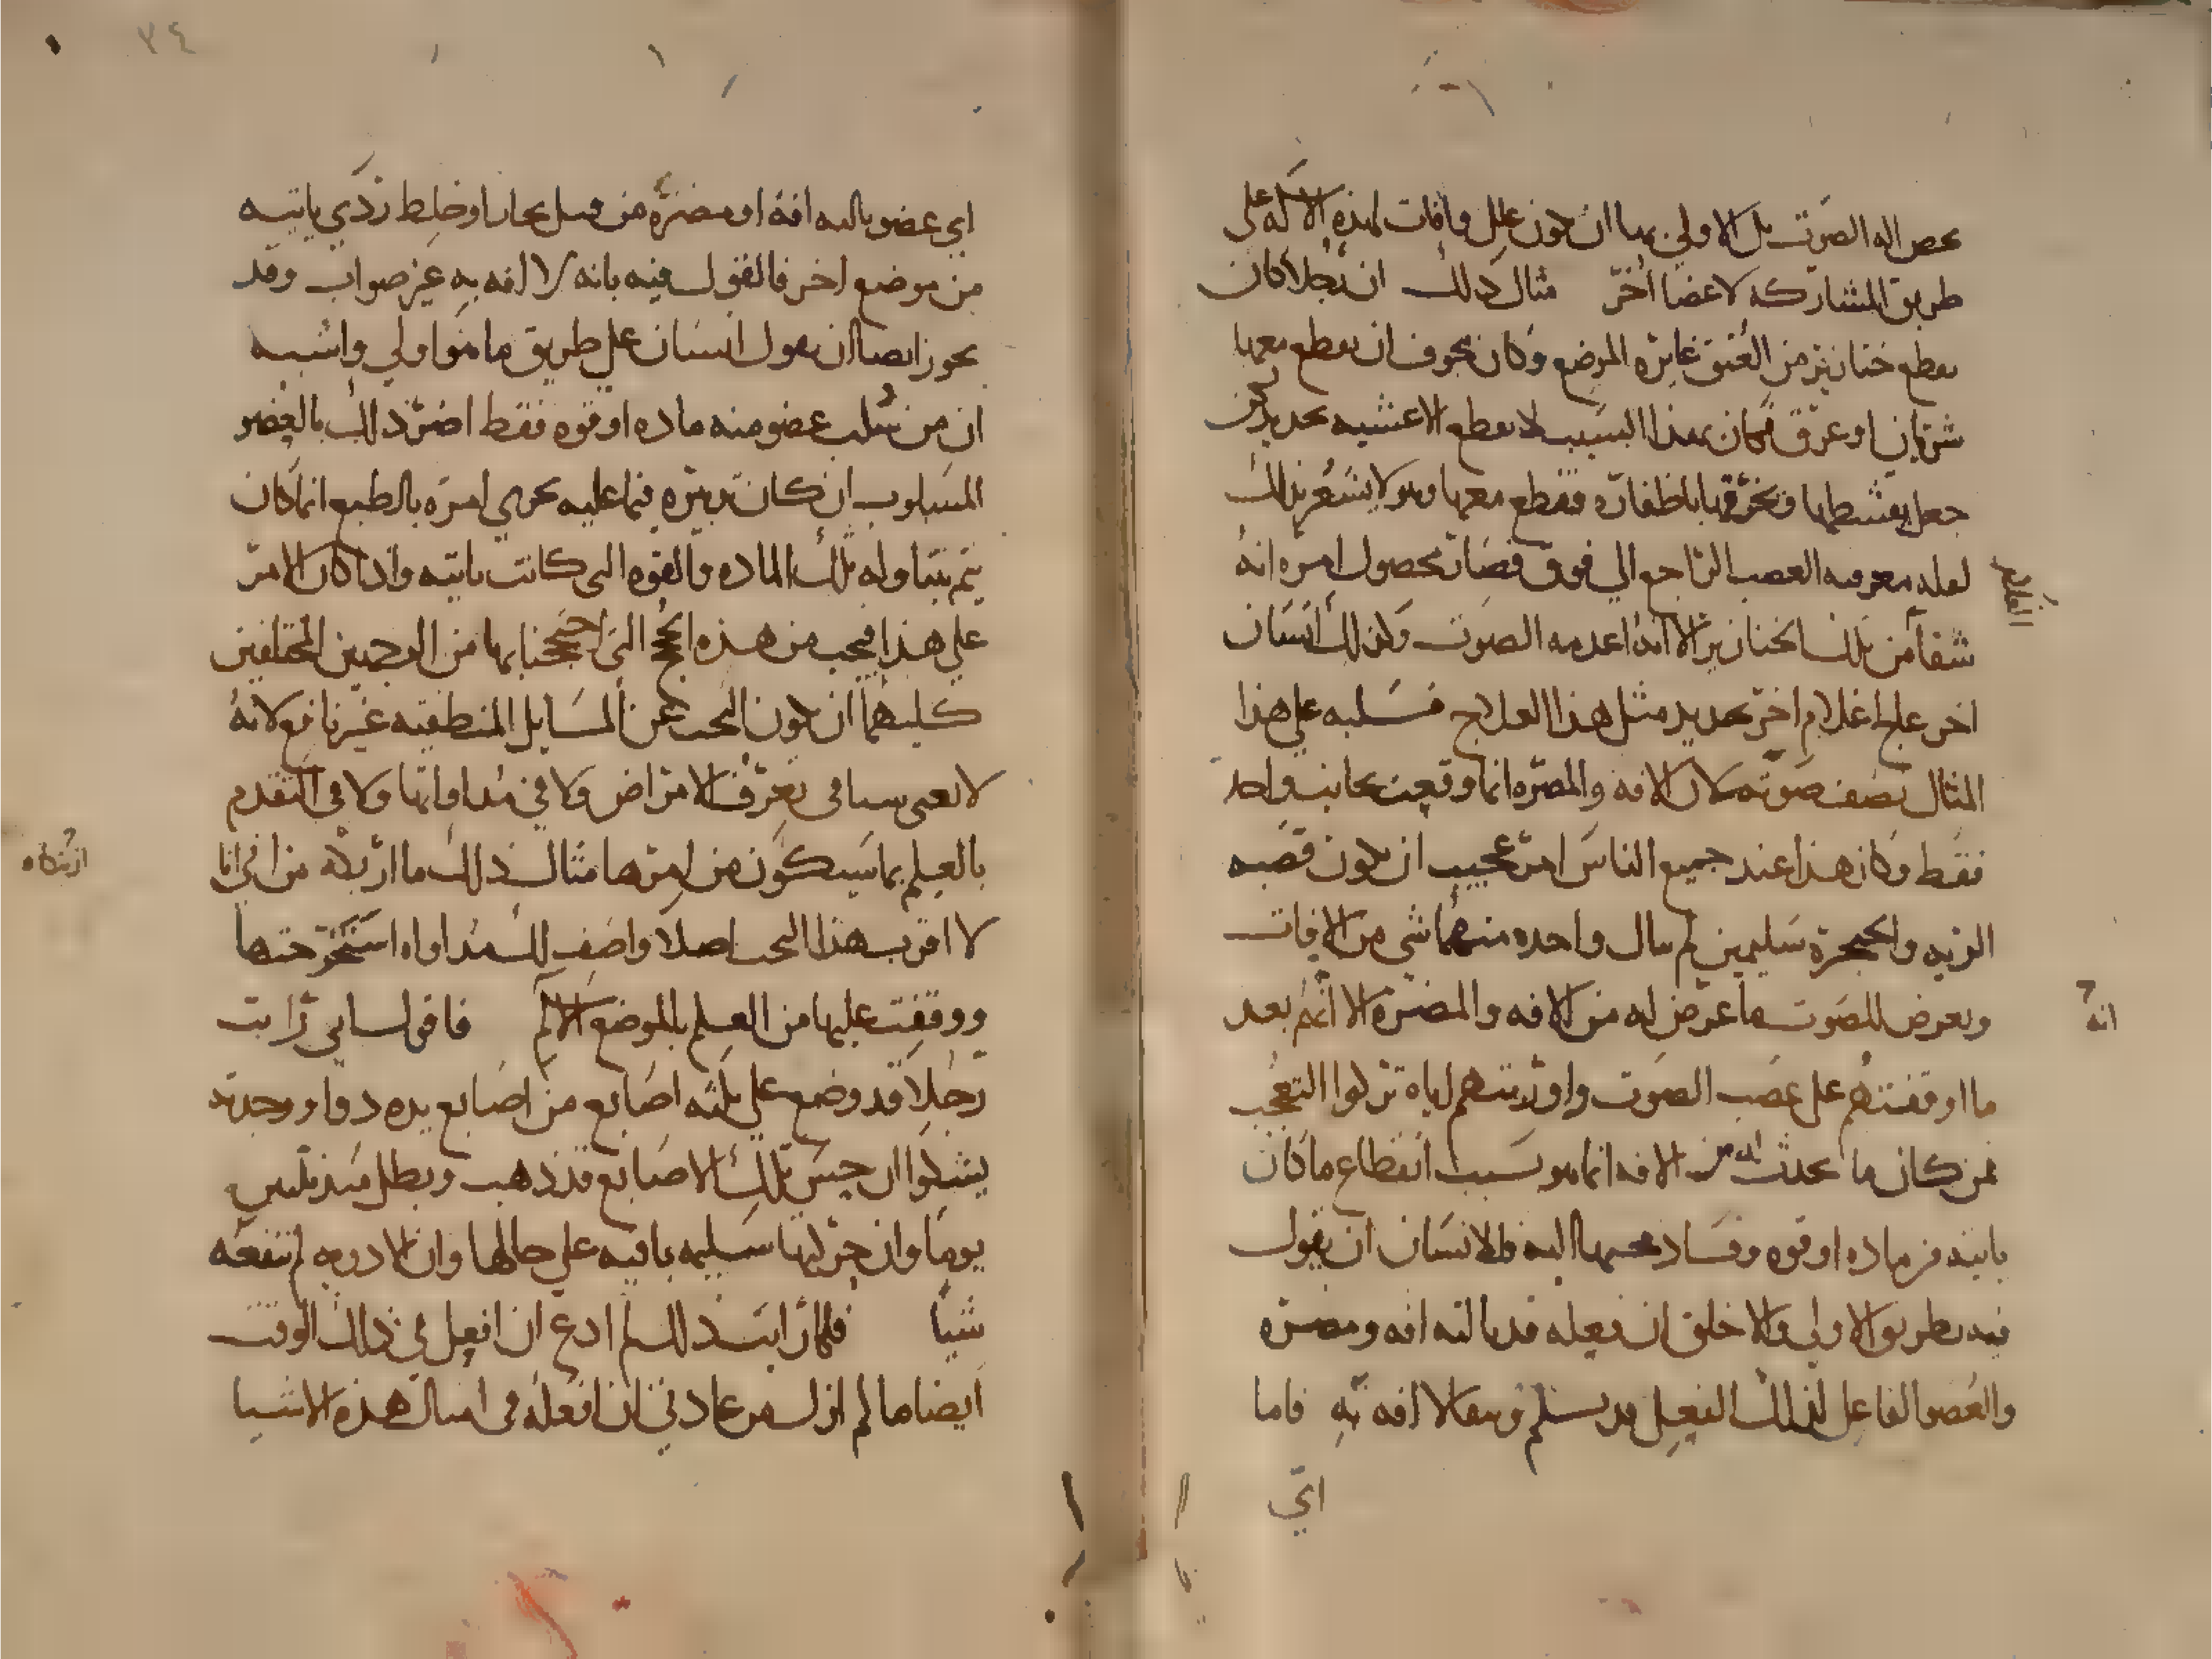 اله الصوت بل الاولي بها ان تكون علل وافات لهذه الالة علي
طريق المشاركه لاعضا اخر مثال ذلك ان رجلا كان
يقطع خنازير من العنق غايره الموضع وكان يخوف ان يقطع معها
شريان او عرق فكان بهذا السبب لا يقطع الاغشيه بحديد لكن
جعل يقشطها ويخرقها باظفاره فقطع معها وهو لا يشعر بذلك
لقله معرفته العصب الراجع الي فوق فصار محصول امره انه
شفا من تلك الخنازير الا انه اعدمه الصوت وكذلك انسان
اخر عالج غلام اخر بحديد مثل هذا العلاج فسلبه علي هذا
المثال نصف صوته لان الافه والمضره انما وقعت بجانب واحد
فقط وكان هذا عند جميع الناس امر عجيب ان تكون قصبه
الريه والحنجرة سليمين لم ينال واحده منهما شي من الافات
ويعرض للصوت ما عرض له من الافه والمضره الا انهم بعد
ما اوقفتهم علي عصب الصوت واوريتهم اياه تركوا التعجب
فمن كان ما يحدث به من الافه انما هو بسبب انقطاع ما كان
ياتيه من ماده او قوه وفساد مجيها اليه فللانسان ان يقول
فيه بطريق الاولي والاخلق ان فعله قد نالته افه ومضره
والعضو الفاعل لذلك الفعل قد يسلم وبقا لا افه به فاما
اي
انه
اي عضو نالته افه او مضره من قبل بخار او خلط ردي ياتيه
من موضع اخر فالقول فيه بانه لا افه به غير صواب وقد
يجوز ايضا ان يقول انسان علي طريق ما هو اولي واشبه
ان من سلب عضو منه ماده او قوه فقط اضر ذلك بالعضو
المسلوب ان كان تدبيره فيما عليه يجري امره بالطبع انما كان
يتم بتناوله تلك الماده والقوه التي كانت ياتيه واذا كان الامر
علي هذا فيجب من هذه الحجج التي احتججنا بها من الوجهين المختلفين
كليهما ان يكون البحث عن المسايل المنطقيه غير نافع لانه
لا يعين شيا في تعرف الامراض ولا في مداواتها ولا في التقدم
بالعلم بما سيكون من امرها مثال ذلك ما اريكه من اني انا
لا اقرب هذا البحث اصلا واصف لك مداواه استخرجتها
ووقفت عليها من العلم بالموضع الالم فاقول اني رايت
رجلا قد وضع علي ثلثه اصابع من اصابع يده دوا ووجدته
يشكوا ان حس تلك الاصابع قد ذهب وبطل منذ ثلثين
يوما وان حركتها سليمه باقيه علي حالها وان الادويه لم تنفعه
شيا فلما رايت ذلك لم ادع ان افعل في ذلك الوقت
ايضا ما لم ازل من عادتي ان افعله في امثال هذه الاشيا
اريكاه
٣٤